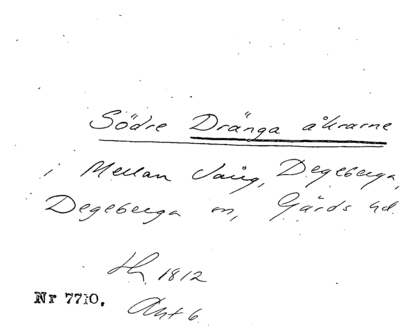 Södre Dränga åkrarne
i Mellan Vång, Degeberga,
Degeberga sn, Gärds hd.
1812
Nr 7710. Akt 6.